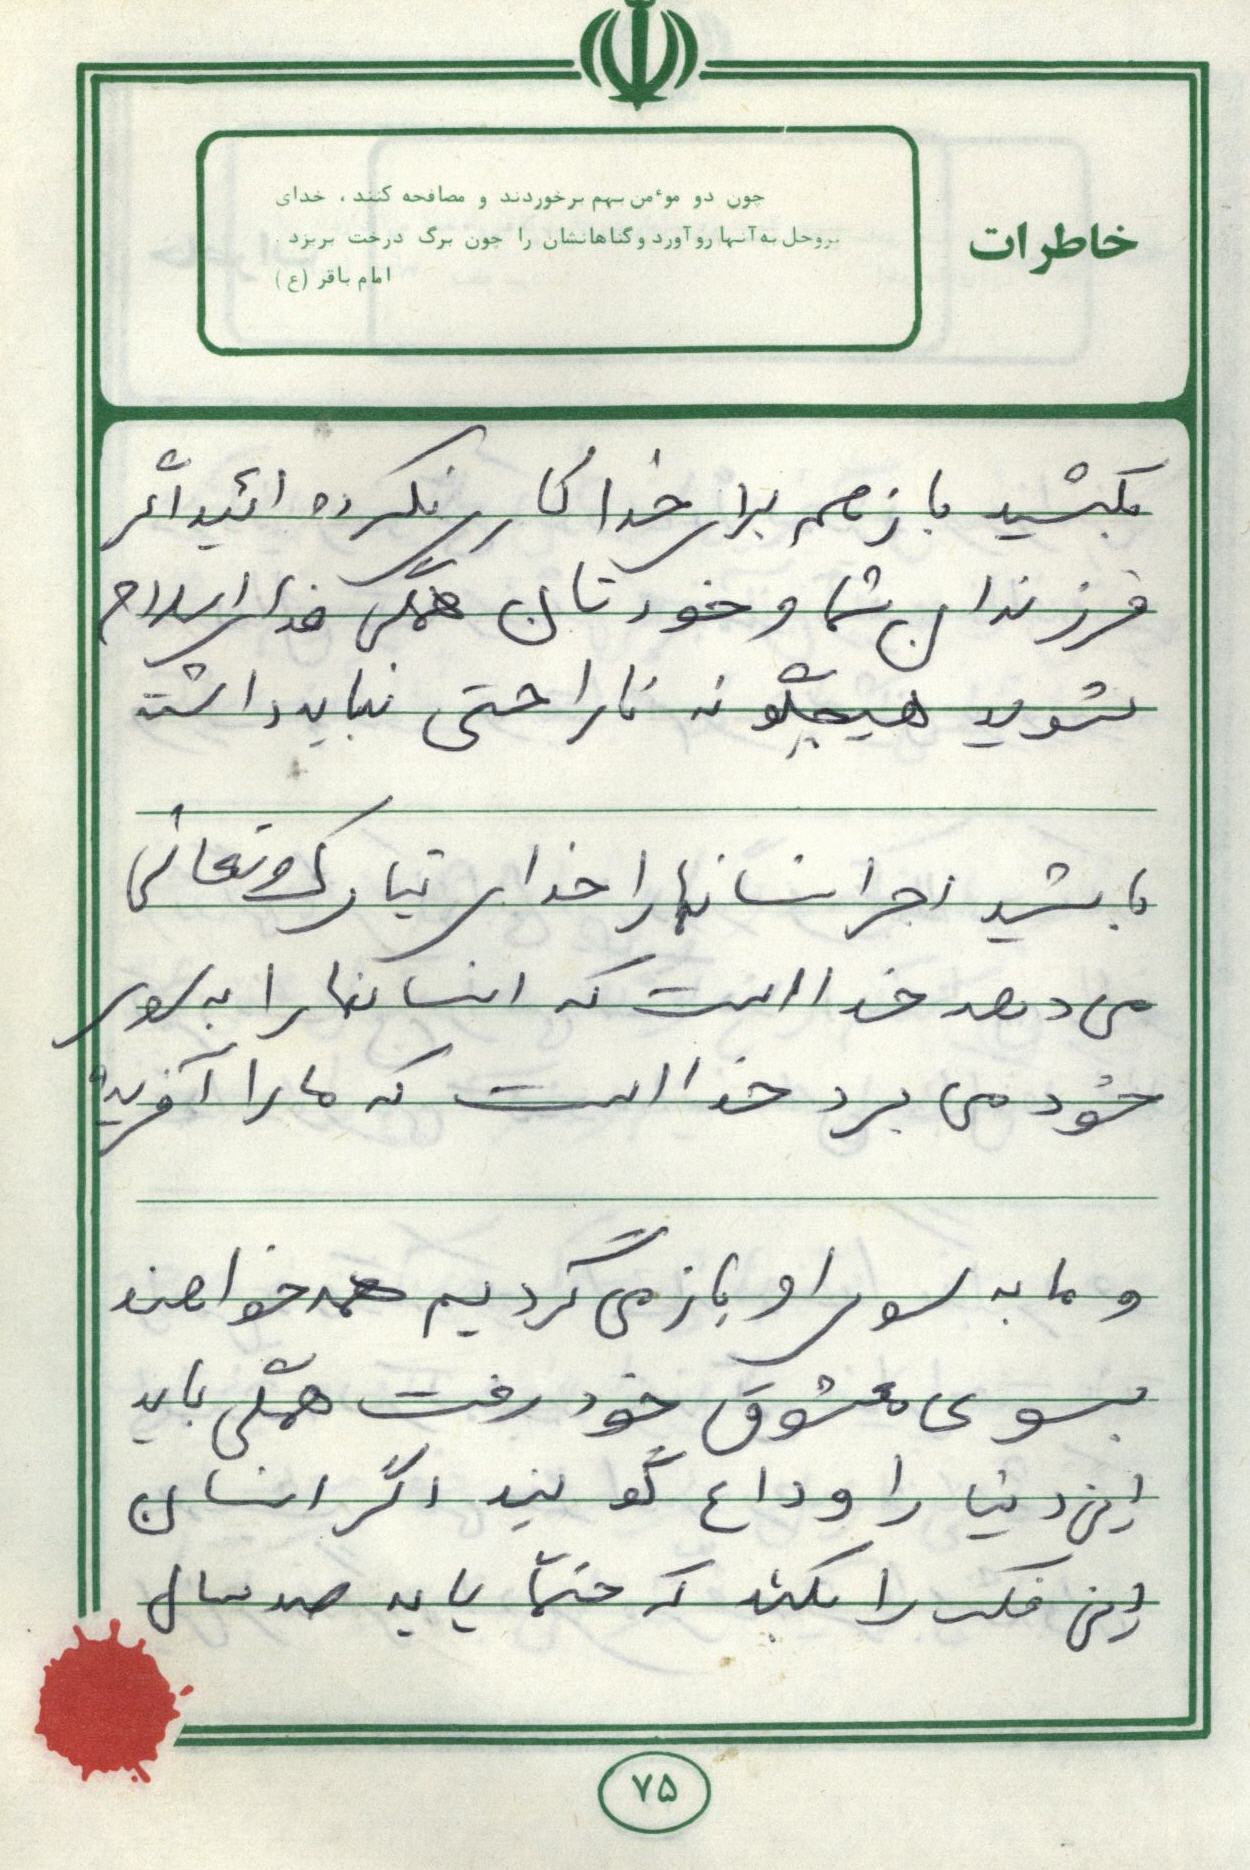 خاطرات
چون دو موٴمن بهم برخوردند و مصافحه کنند، خدای
عزوجل به آنها رو آورد و گناهانشان را چون برگ درخت بریزد.
امام باقر (ع)
بکشید باز هم برای خدا کاری نکرده ائید اگر
فرزندان شما و خودتان همگی فدای اسلام
بشوید هیچگونه ناراحتی نباید داشته
باشید اجر انسانها را خدای تبارک و تعالی
می دهد خدا است که انسانها را به سوی
خود می برد خدا است که ما را آفریده
و ما به سوی او باز می گردیم همه خواهند
بسوی معشوق خود رفت همگی باید
این دنیا را وداع گویند اگر انسان
این فکر را بکند که حتماً باید صد سال
۷۵